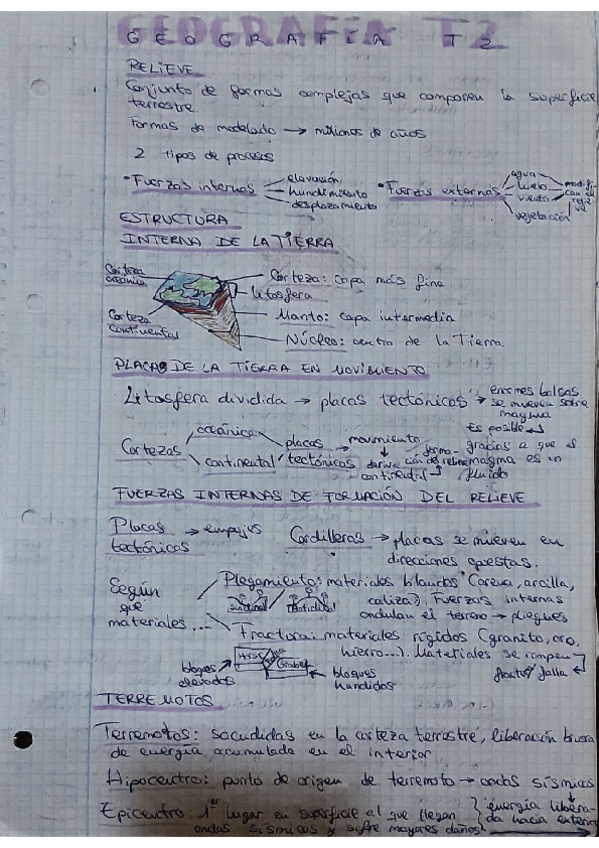 GEOGRAFÍA T2
RELIEVE
Conjunto de formas complejas que componen la superficie
terrestre.
Formas de modelado → millones de años
2 tipos de procesos
• Fuerzas internas elevación hundimiento desplazamiento • Fuerzas externas agua hielo viento vegetación
ESTRUCTURA
INTERNA DE LA TIERRA
Corteza oceánica
Corteza: capa más fina
Litosfera
Corteza continental
Manto: capa intermedia
Núcleo: centro de la Tierra
PLACAS DE LA TIERRA EN MOVIMIENTO
Litosfera dividida → placas tectónicas → enormes bolsas
se mueven sobre
magma
Es posible
gracias a que el
magma es un
fluido
Cortezas oceánica continental placas tectónicas → movimiento
deriva continental
FUERZAS INTERNAS DE FORMACIÓN DEL RELIEVE
Placas tectónicas → empujes
Cordilleras → placas se mueven en
direcciones opuestas.
Según que materiales...
Plegamiento: materiales blandos (arena, arcilla,
caliza). Fuerzas internas
ondulan el terreno → pliegues
Sinclinal Anticlinal
Fractura: materiales rígidos (granito, oro,
hierro...). Materiales se rompen
fractura/falla
Horst Graben
bloques elevados
bloques hundidos
TERREMOTOS
Terremotos: sacudidas en la corteza terrestre, liberación brusca
de energía acumulada en el interior
Hipocentro: punto de origen de terremoto → ondas sísmicas
Epicentro: 1er lugar en superficie al que llegan
ondas sísmicas y sufre mayores daños
energía liberada hacia exterior